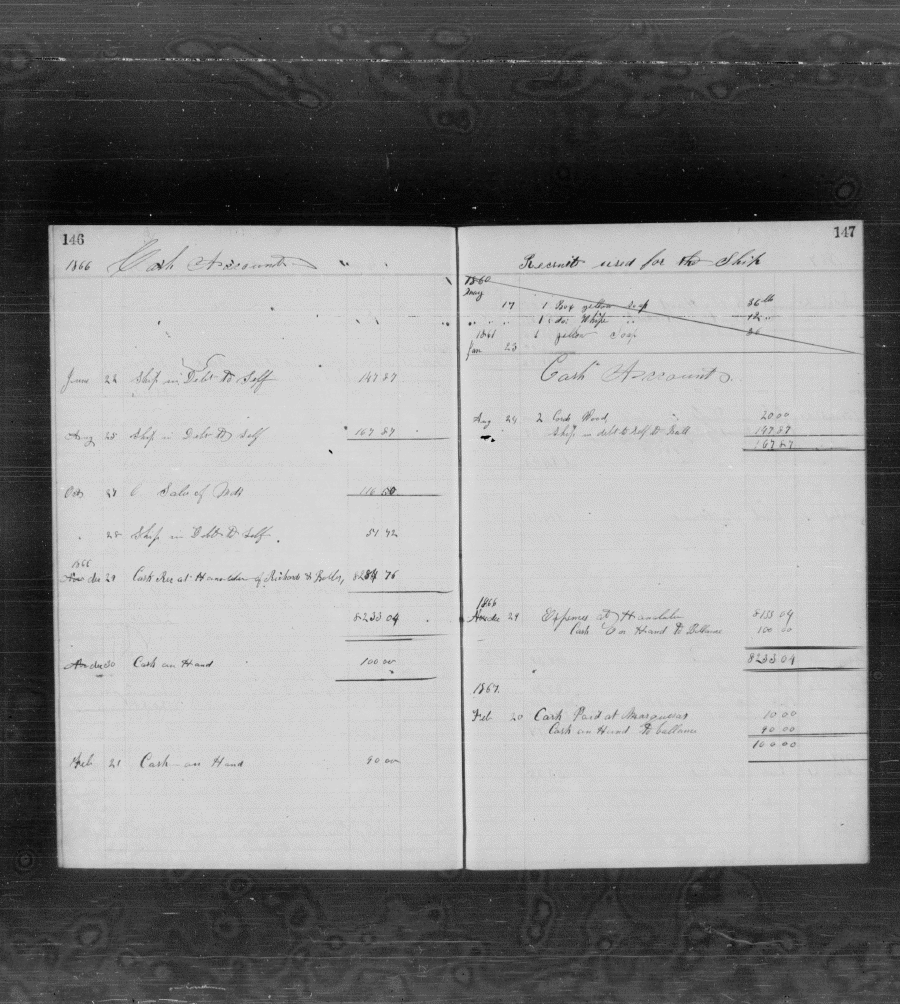 146
1866 Cash Accounts
June 22 Ship in Debt to Self 147 87
Aug 25 Ship in Debt to Self 167 87
Oct 27 Sale of 116 50
" 28 Ship in Debt to Self 51 42
1866
Nov dec 29 Cash Rec at of Richards & 76
8233 04
dec 30 Cash on Hand 100 00
Feb 21 Cash on Hand 90 00
147
Recruits used for the Ship
1860
May
17 1 Box yellow Soap 36 lb
" " " 1 do White "
1861 1 yellow Soap 36
Jan 23
Cash Accounts
Aug 24 2 Cords Wood 20 00
Ship in debt to Self to Ball 147 87
167 87
1866
dec 29 Expenses at Honolulu 8133 04
Cash on Hand to Ballance 100 00
8233 04
1867
Feb 20 Cash Paid at Marquesas 10 00
Cash on Hand to ballance 90 00
100 00